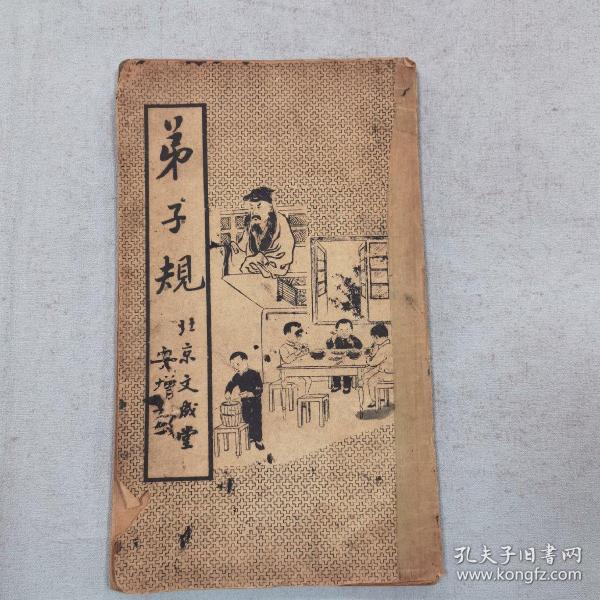 弟子規
北京文成堂
安增
孔夫子旧书网
www.kongfz.com